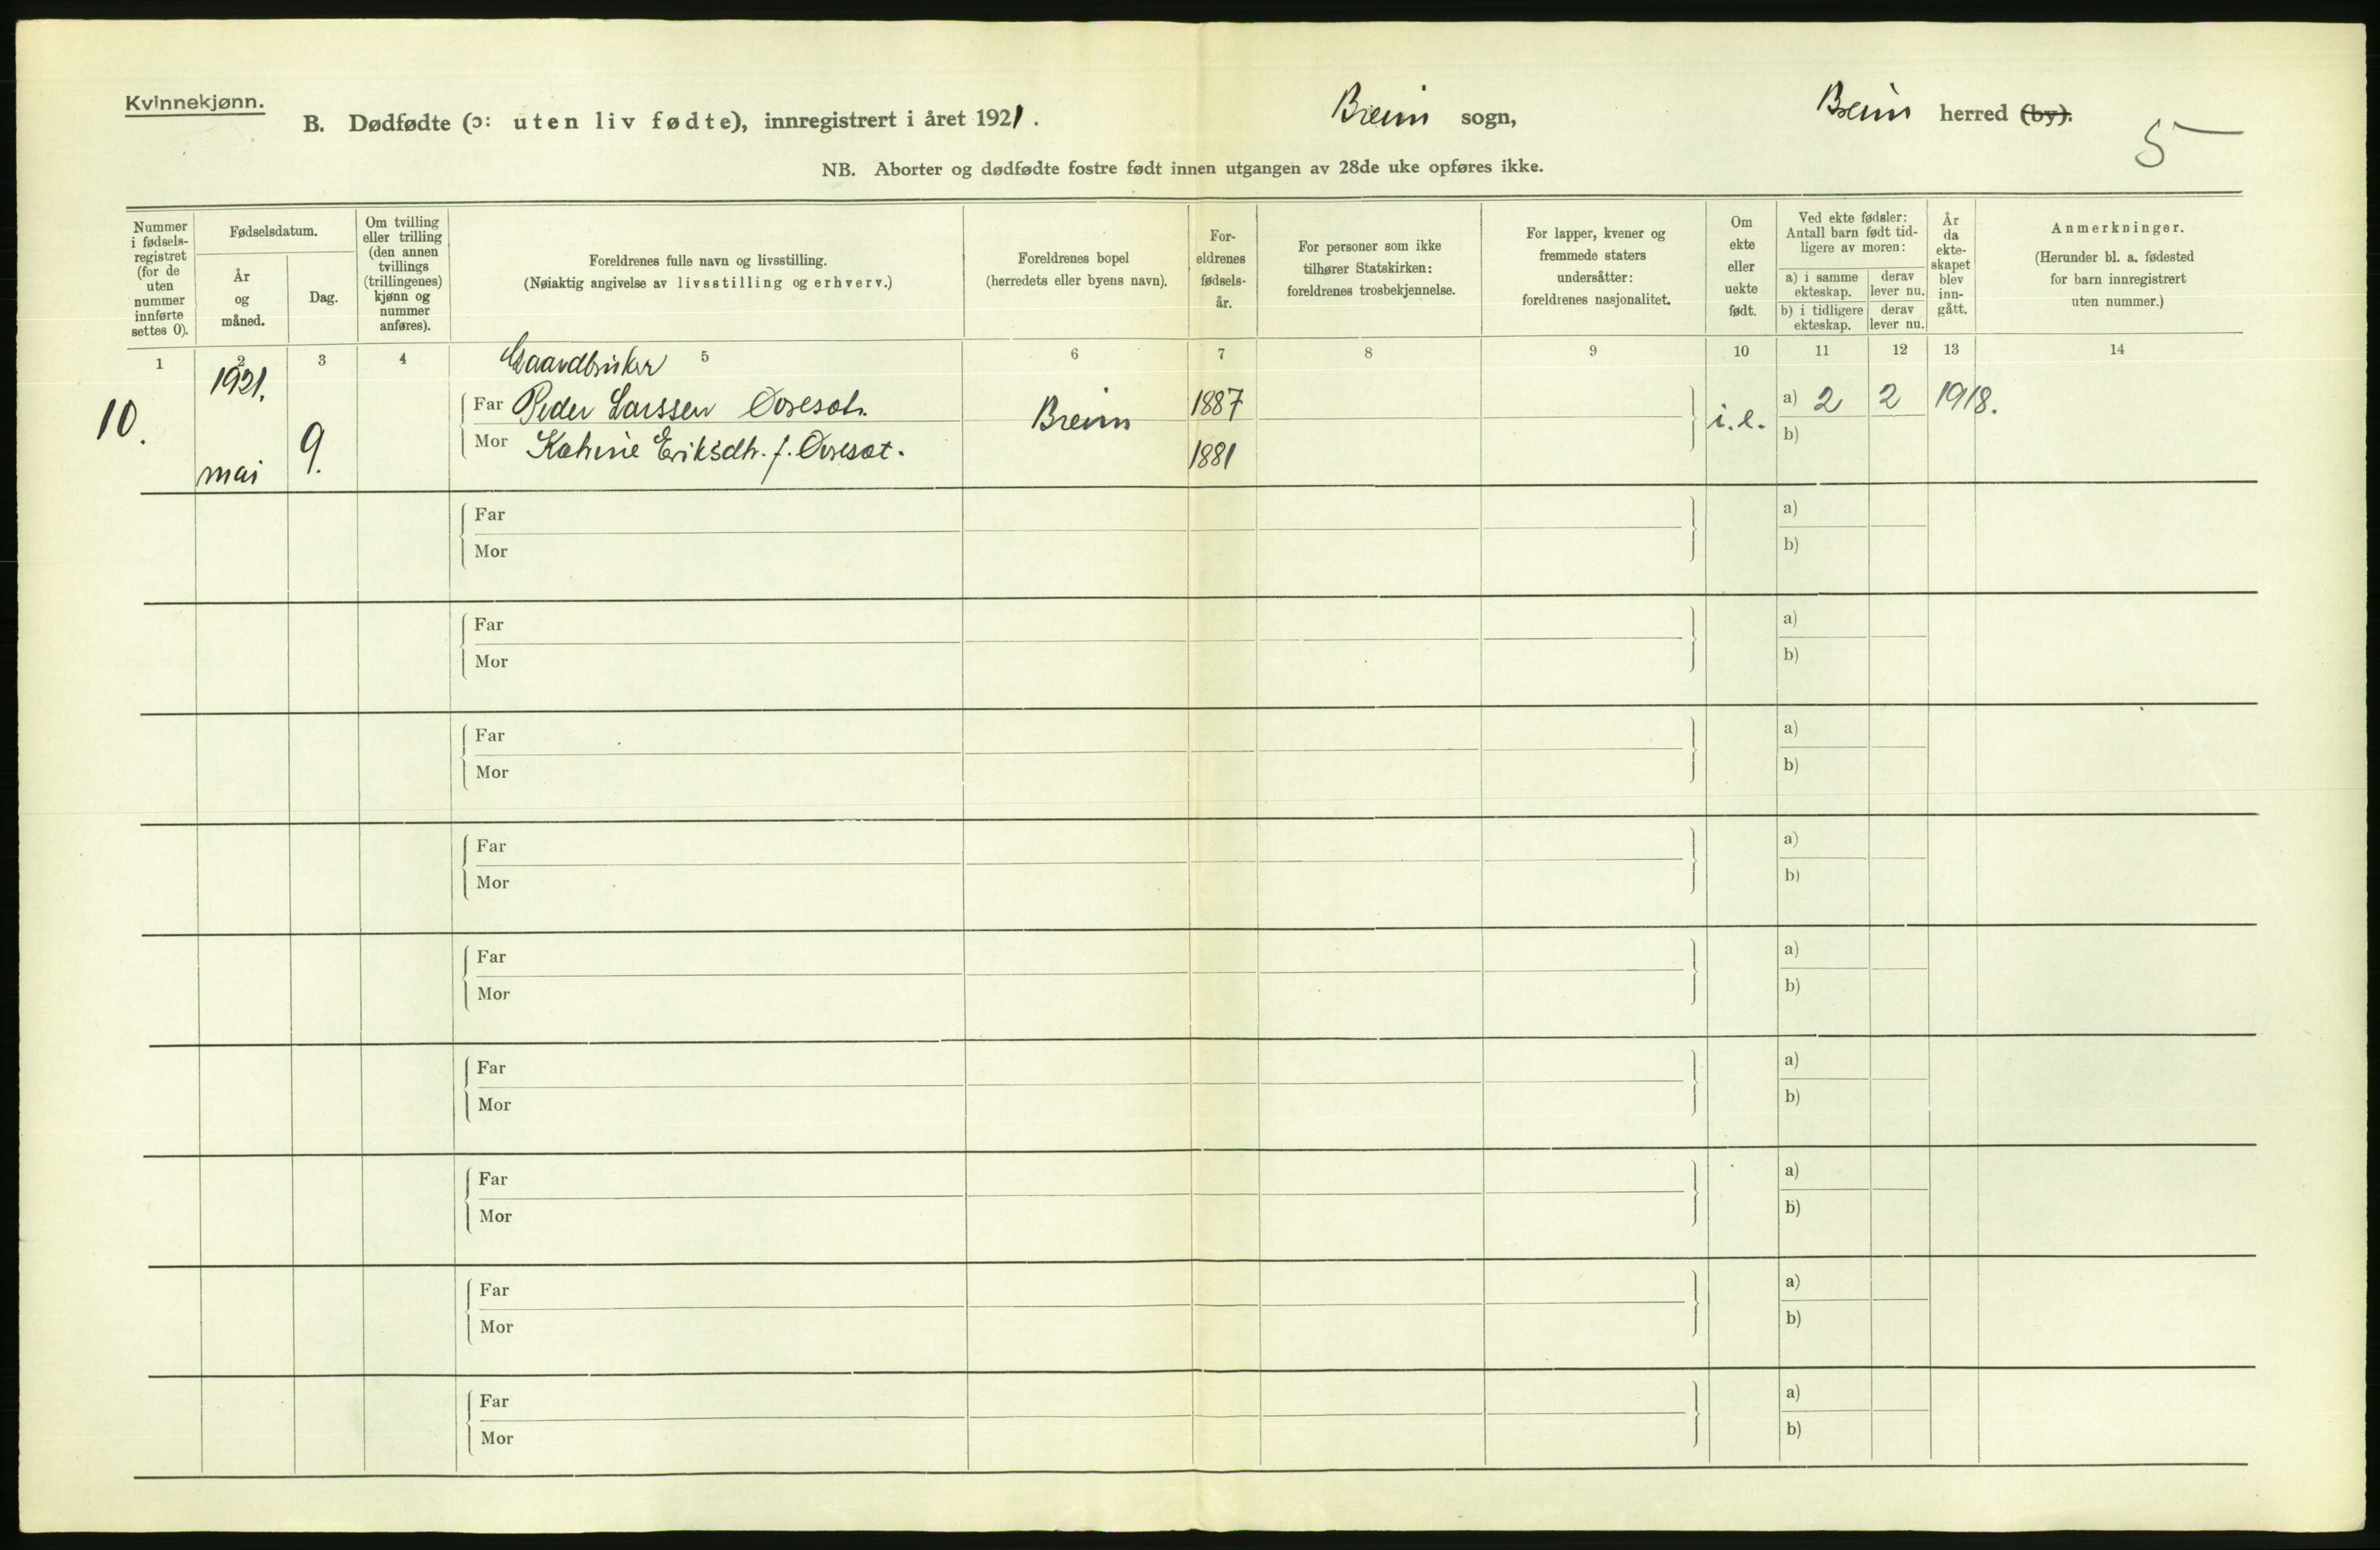 Kvinnekjønn.
B. Dødfødte (ɔ: uten liv fødte), innregistrert i året 1921. Breim sogn, Breim herred (by).
5
NB. Aborter og dødfødte fostre født innen utgangen av 28de uke opføres ikke.
Nummer
i fødsels-
registret
(for de
uten
nummer
innførte
settes 0).
Fødselsdatum.
År
og
måned.
Dag.
Om tvilling
eller trilling
(den annen
tvillings
(trillingenes)
kjønn og
nummer
anføres).
Foreldrenes fulle navn og livsstilling.
(Nøiaktig angivelse av livsstilling og erhverv.)
Foreldrenes bopel
(herredets eller byens navn).
For-
eldrenes
fødsels-
år.
For personer som ikke
tilhører Statskirken:
foreldrenes trosbekjennelse.
For lapper, kvener og
fremmede staters
undersåtter:
foreldrenes nasjonalitet.
Om
ekte
eller
uekte
født.
Ved ekte fødsler:
Antall barn født tid-
ligere av moren:
a) i samme
ekteskap.
derav
lever nu.
b) i tidligere
ekteskap.
derav
lever nu.
År
da
ekte-
skapet
blev
inn-
gått.
Anmerkninger.
(Herunder bl. a. fødested
for barn innregistrert
uten nummer.)
1 2 3 4 5 6 7 8 9 10 11 12 13 14
Gaardbruker
1921.
10.
mai
9.
Far Peder Larssen
Mor Katrine Eriksdtr. f.
Breim
1887
1881
i.e.
a) 2 2 1918.
b)
Far a)
Mor b)
Far a)
Mor b)
Far a)
Mor b)
Far a)
Mor b)
Far a)
Mor b)
Far a)
Mor b)
Far a)
Mor b)
Far a)
Mor b)
Far a)
Mor b)